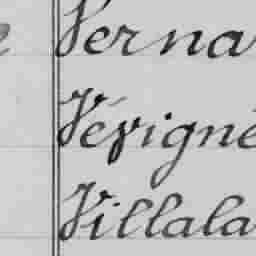 Verna
Vévigné
Villala